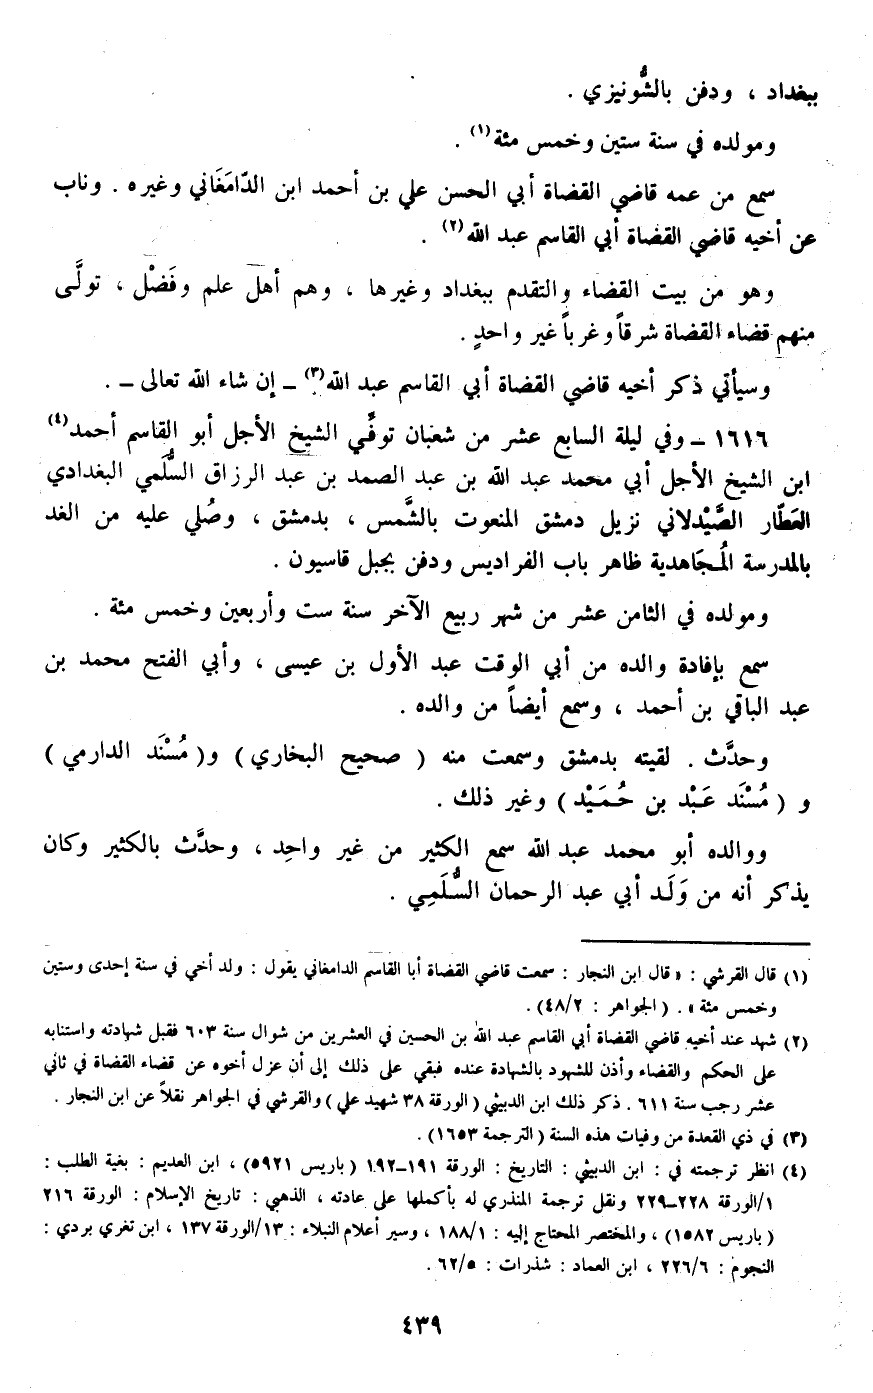 ببغداد ، ودفن بالشُّونيزي .
ومولده في سنة ستين وخمس مئة(١) .
سمع من عمه قاضي القضاة أبي الحسن علي بن أحمد ابن الدّامَغَاني وغيره . وناب
عن أخيه قاضي القضاة أبي القاسم عبد الله(٢) .
وهو من بيت القضاء والتقدم ببغداد وغيرها ، وهم أهل علم وفَضْل ، تولَّى
منهم قضاء القضاة شرقاً وغرباً غير واحدٍ .
وسيأتي ذكر أخيه قاضي القضاة أبي القاسم عبد الله(٣) ــ إن شاء الله تعالى ــ .
١٦١٦ ــ وفي ليلة السابع عشر من شعبان توفِّي الشيخ الأجل أبو القاسم أحمد(٤)
ابن الشيخ الأجل أبي محمد عبد الله بن عبد الصمد بن عبد الرزاق السُّلَمي البغدادي
العَطّار الصَّيْدلاني نزيل دمشق المنعوت بالشَّمس ، بدمشق ، وصُلي عليه من الغد
بالمدرسة المُجَاهدية ظاهر باب الفراديس ودفن بجبل قاسيون .
ومولده في الثامن عشر من شهر ربيع الآخر سنة ست وأربعين وخمس مئة .
سمع بإفادة والده من أبي الوقت عبد الأول بن عيسى ، وأبي الفتح محمد بن
عبد الباقي بن أحمد ، وسمع أيضاً من والده .
وحدَّث . لقيته بدمشق وسمعت منه ( صحيح البخاري ) و( مُسْنَد الدارمي )
و ( مُسْنَد عَبْد بن حُمَيْد ) وغير ذلك .
ووالده أبو محمد عبد الله سمع الكثير من غير واحِد ، وحدَّث بالكثير وكان
يذكر أنه من وَلَد أبي عبد الرحمان السُّلَمِي .
(١) قال القرشي : « قال ابن النجار : سمعت قاضي القضاة أبا القاسم الدامغاني يقول : ولد أخي في سنة إحدى وستين
وخمس مئة » . ( الجواهر : ٤٨/٢) .
(٢) شهد عند أخيه قاضي القضاة أبي القاسم عبد الله بن الحسين في العشرين من شوال سنة ٦٠٣ فقبل شهادته واستنابه
على الحكم والقضاء وأذن للشهود بالشهادة عنده فبقي على ذلك إلى أن عزل أخوه عن قضاء القضاة في ثاني
عشر رجب سنة ٦١١ . ذكر ذلك ابن الدبيثي ( الورقة ٣٨ شهيد علي ) والقرشي في الجواهر نقلاً عن ابن النجار .
(٣) في ذي القعدة من وفيات هذه السنة ( الترجمة ١٦٥٣) .
(٤) انظر ترجمته في : ابن الدبيثي : التاريخ : الورقة ١٩١–١٩٢ ( باريس ٥٩٢١) ، ابن العديم : بغية الطلب :
١/الورقة ٢٢٨–٢٢٩ ونقل ترجمة المنذري له بأكملها على عادته ، الذهبي : تاريخ الإسلام : الورقة ٢١٦
( باريس ١٥٨٢) ، والمختصر المحتاج إليه : ١٨٨/١ ، وسير أعلام النبلاء : ١٣/الورقة ١٣٧ ، ابن تغري بردي :
النجوم : ٢٢٦/٦ ، ابن العماد : شذرات : ٦٢/٥ .
٤٣٩